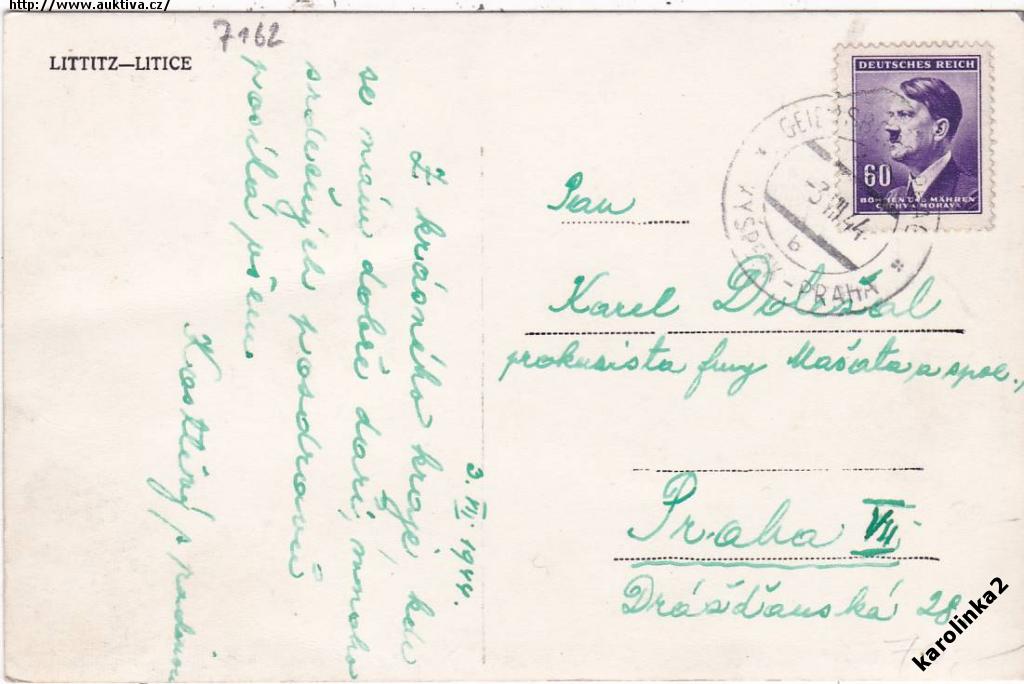 http://www.auktiva.cz/
7162
LITTITZ—LITICE
DEUTSCHES REICH
60
BÖHMEN UND MÄHREN
ČECHY A MORAVA
3 VII 44
b
KYŠPERK - PRAHA
3. VII. 1944.
Z krásného kraje, kde
se mám dobře daří, mnoho
srdečných pozdravů
posílá všem
Pan
Karel Doležal
prokurista fmy Mašata a spol.,
Praha VII
Drážďanská 28
karolinka2